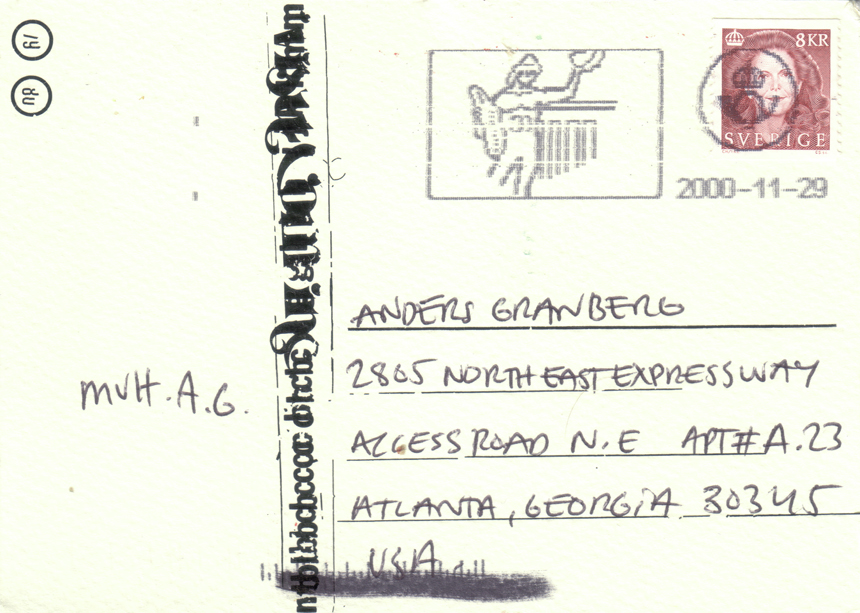 8KR
SVERIGE
2000-11-29
ANDERS GRANBERG
2805 NORTHEAST EXPRESSWAY
ACCESS ROAD N.E APT# A.23
ATLANTA, GEORGIA 30345
USA
MVH. A.G.